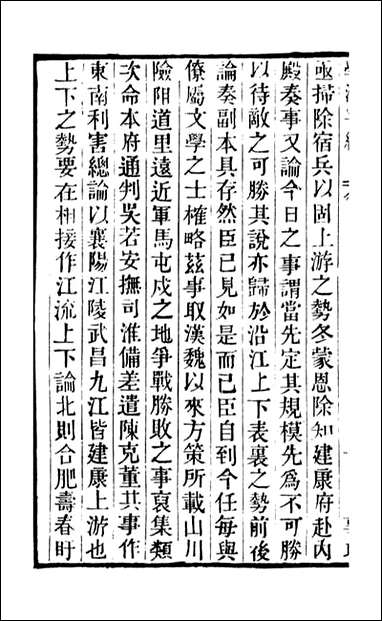 亟掃除宿兵以固上游之勢冬蒙恩除知建康府赴內
殿奏事又論今日之事謂當先定其規模先為不可勝
以待敵之可勝其說亦歸於沿江上下表裏之勢前後
論奏副本具存然臣已見如是而已臣自到今任每與
僚屬文學之士榷略茲事取漢魏以來方策所載山川
險阻道里遠近軍馬屯戍之地爭戰勝敗之事裒集類
次命本府通判吳若安撫司准備差遣陳克董其事作
東南利害總論以襄陽江陵武昌九江皆建康上游也
上下之勢要在相接作江流上下論北則合肥壽春盱